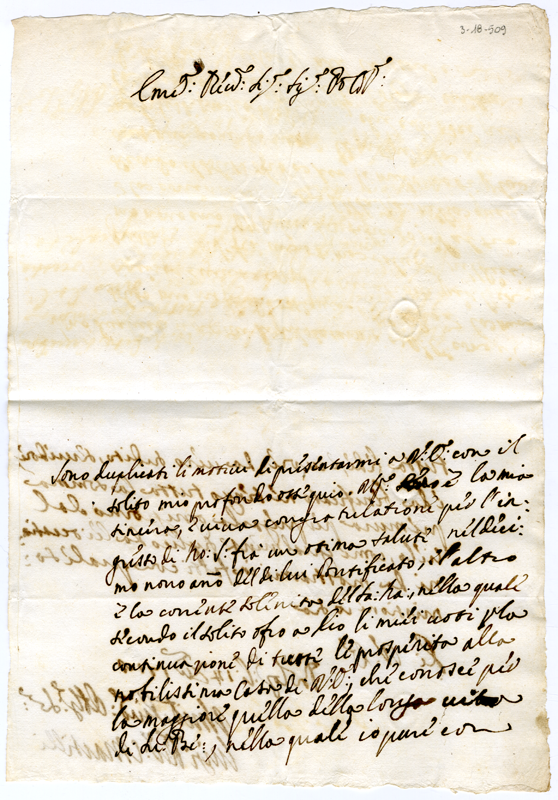 3-18-509
Em.º: Rev.º: Sig.r: Sig.r: P. Col.º:
Sono duplicati li motivi di presentarmi a V: E: con il
solito mio profondo ossequio. Il p.º è la mia
sincera, e viva congratulazione per l'in=
gresso di No: S: frà un ottima salute nel deci=
mo nono anno del di lui Pontificato, e l'altro
è la corrente solennità della Sa: , nella quale
secondo il solito ofro a Dio li miei voti p la
continuazione di tutte le prosperità alla
nobilissima Casa di V: E: che conosce per
la maggiore quella della longa vita
di Su: Be: , nella quale io pure con